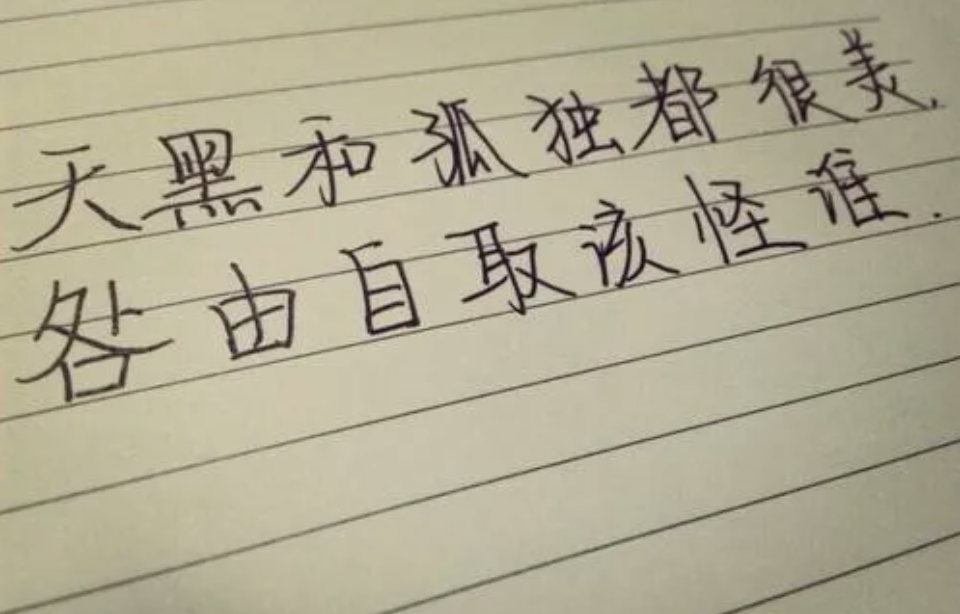 天黑和孤独都很美.
咎由自取该怪谁.